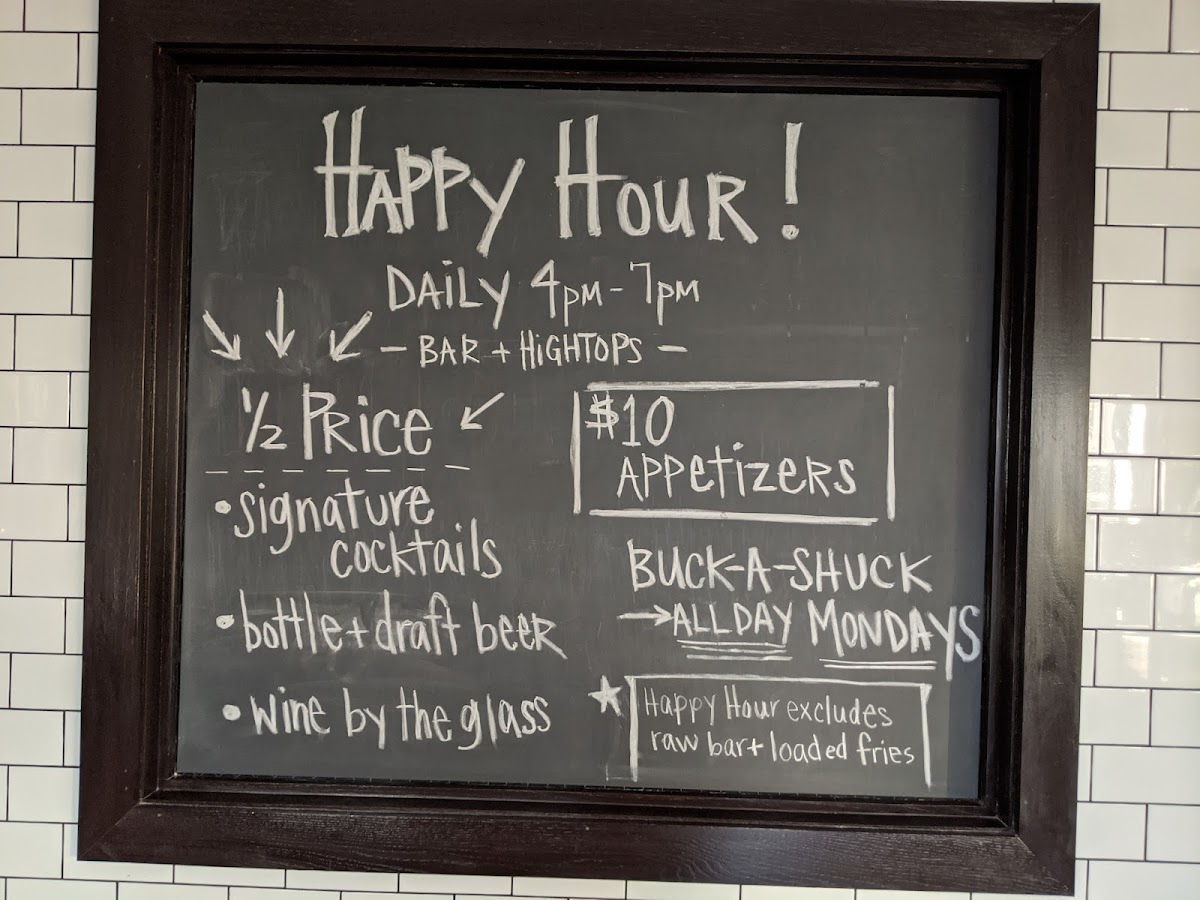 Happy Hour!
Daily 4pm-7pm
- Bar + Hightops -
1/2 Price
• signature
cocktails
• bottle + draft beer
• wine by the glass
$10
Appetizers
Buck-A-Shuck
→ All Day Mondays
★ Happy Hour excludes
raw bar + loaded fries